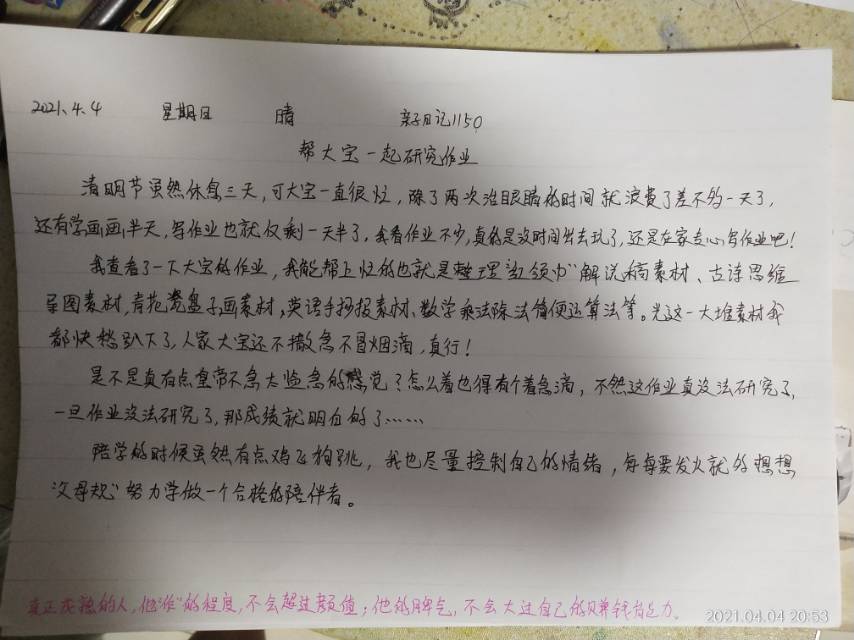 2021.4.4 星期日 晴 亲子日记1150
帮大宝一起研究作业
清明节虽然休息三天,可大宝一直很忙,除了两次治眼睛的时间就浪费了差不多一天了,
还有学画画半天,写作业也就仅剩一天半了,我看作业不少,真的是没时间出去玩了,还是在家专心写作业吧!
我查看了一下大宝的作业,我能帮上忙的也就是整理"红领巾"解说稿素材、古诗思维
导图素材,青花瓷盘子画素材,英语手抄报素材、数学乘法除法简便运算法等。光这一大堆素材我
都快愁趴下了,人家大宝还不撒急不冒烟滴,真行!
是不是真有点皇帝不急太监急的感觉?怎么着也得有个着急滴,不然这作业真没法研究了,
一旦作业没法研究了,那成绩就明白的了……
陪学的时候虽然有点鸡飞狗跳,我也尽量控制自己的情绪,每每要发火就的想想
父母规"努力学做一个合格的陪伴者。
真正成熟的人,他"作"的程度,不会超过颜值;他的脾气,不会大过自己的赚钱能力。
2021.04.04 20:53